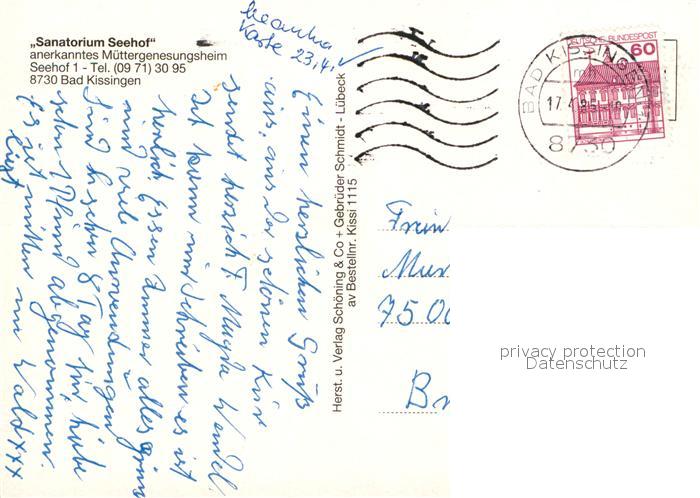 „Sanatorium Seehof"
anerkanntes Müttergenesungsheim
Seehof 1 - Tel. (09 71) 30 95
8730 Bad Kissingen
Karte 23.4.
Einen herzlichen Gruß
aus, aus der schönen Kur
sendet herzlichst Magda
Zeit kann nur schreiben es ist
herrlich Essen Zimmer alles prima
und viele Anwendungen
sind schon 8 Tag hir habe
schon 1 Pfund abgenommen.
Es ist mitten im Wald xxx
liegt
Herst. u. Verlag Schöning & Co + Gebrüder Schmidt - Lübeck
av Bestellnr. Kissi 1115
DEUTSCHE BUNDESPOST
60
BAD KISSINGEN
17.4.85
8730
7500
privacy protection
Datenschutz